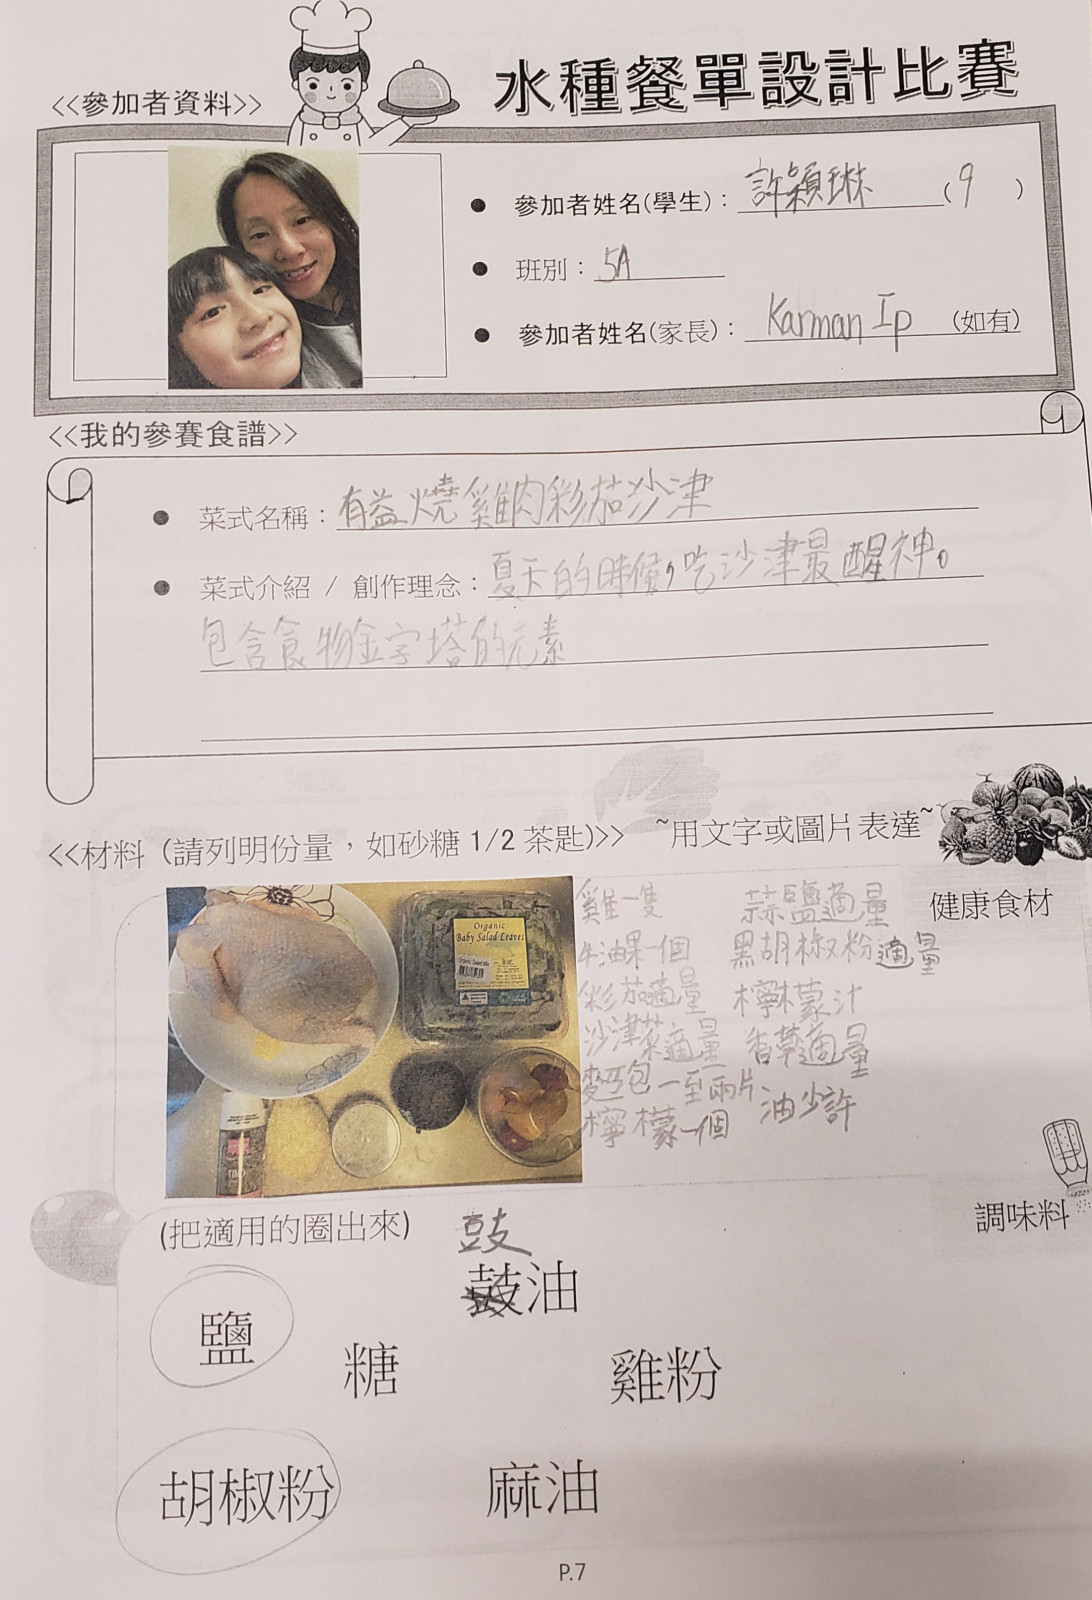 水種餐單設計比賽
<<參加者資料>>
● 參加者姓名(學生)：許穎琳 (9)
● 班別：5A
● 參加者姓名(家長)：Karman Ip (如有)
<<我的參賽食譜>>
● 菜式名稱：有益燒雞肉彩茄沙津
● 菜式介紹 / 創作理念：夏天的時候，吃沙津最醒神。
包含食物金字塔的元素
<<材料 (請列明份量，如砂糖 1/2 茶匙)>> ~用文字或圖片表達~
健康食材
Organic
Baby Salad Leaves
雞一隻 蒜鹽適量
牛油果一個 黑胡椒粉適量
彩茄適量 檸檬汁
沙津菜適量 香草適量
麥包一至兩片 油少許
檸檬一個
調味料
(把適用的圈出來) 豉
鼓油
鹽
糖 雞粉
胡椒粉 麻油
P.7